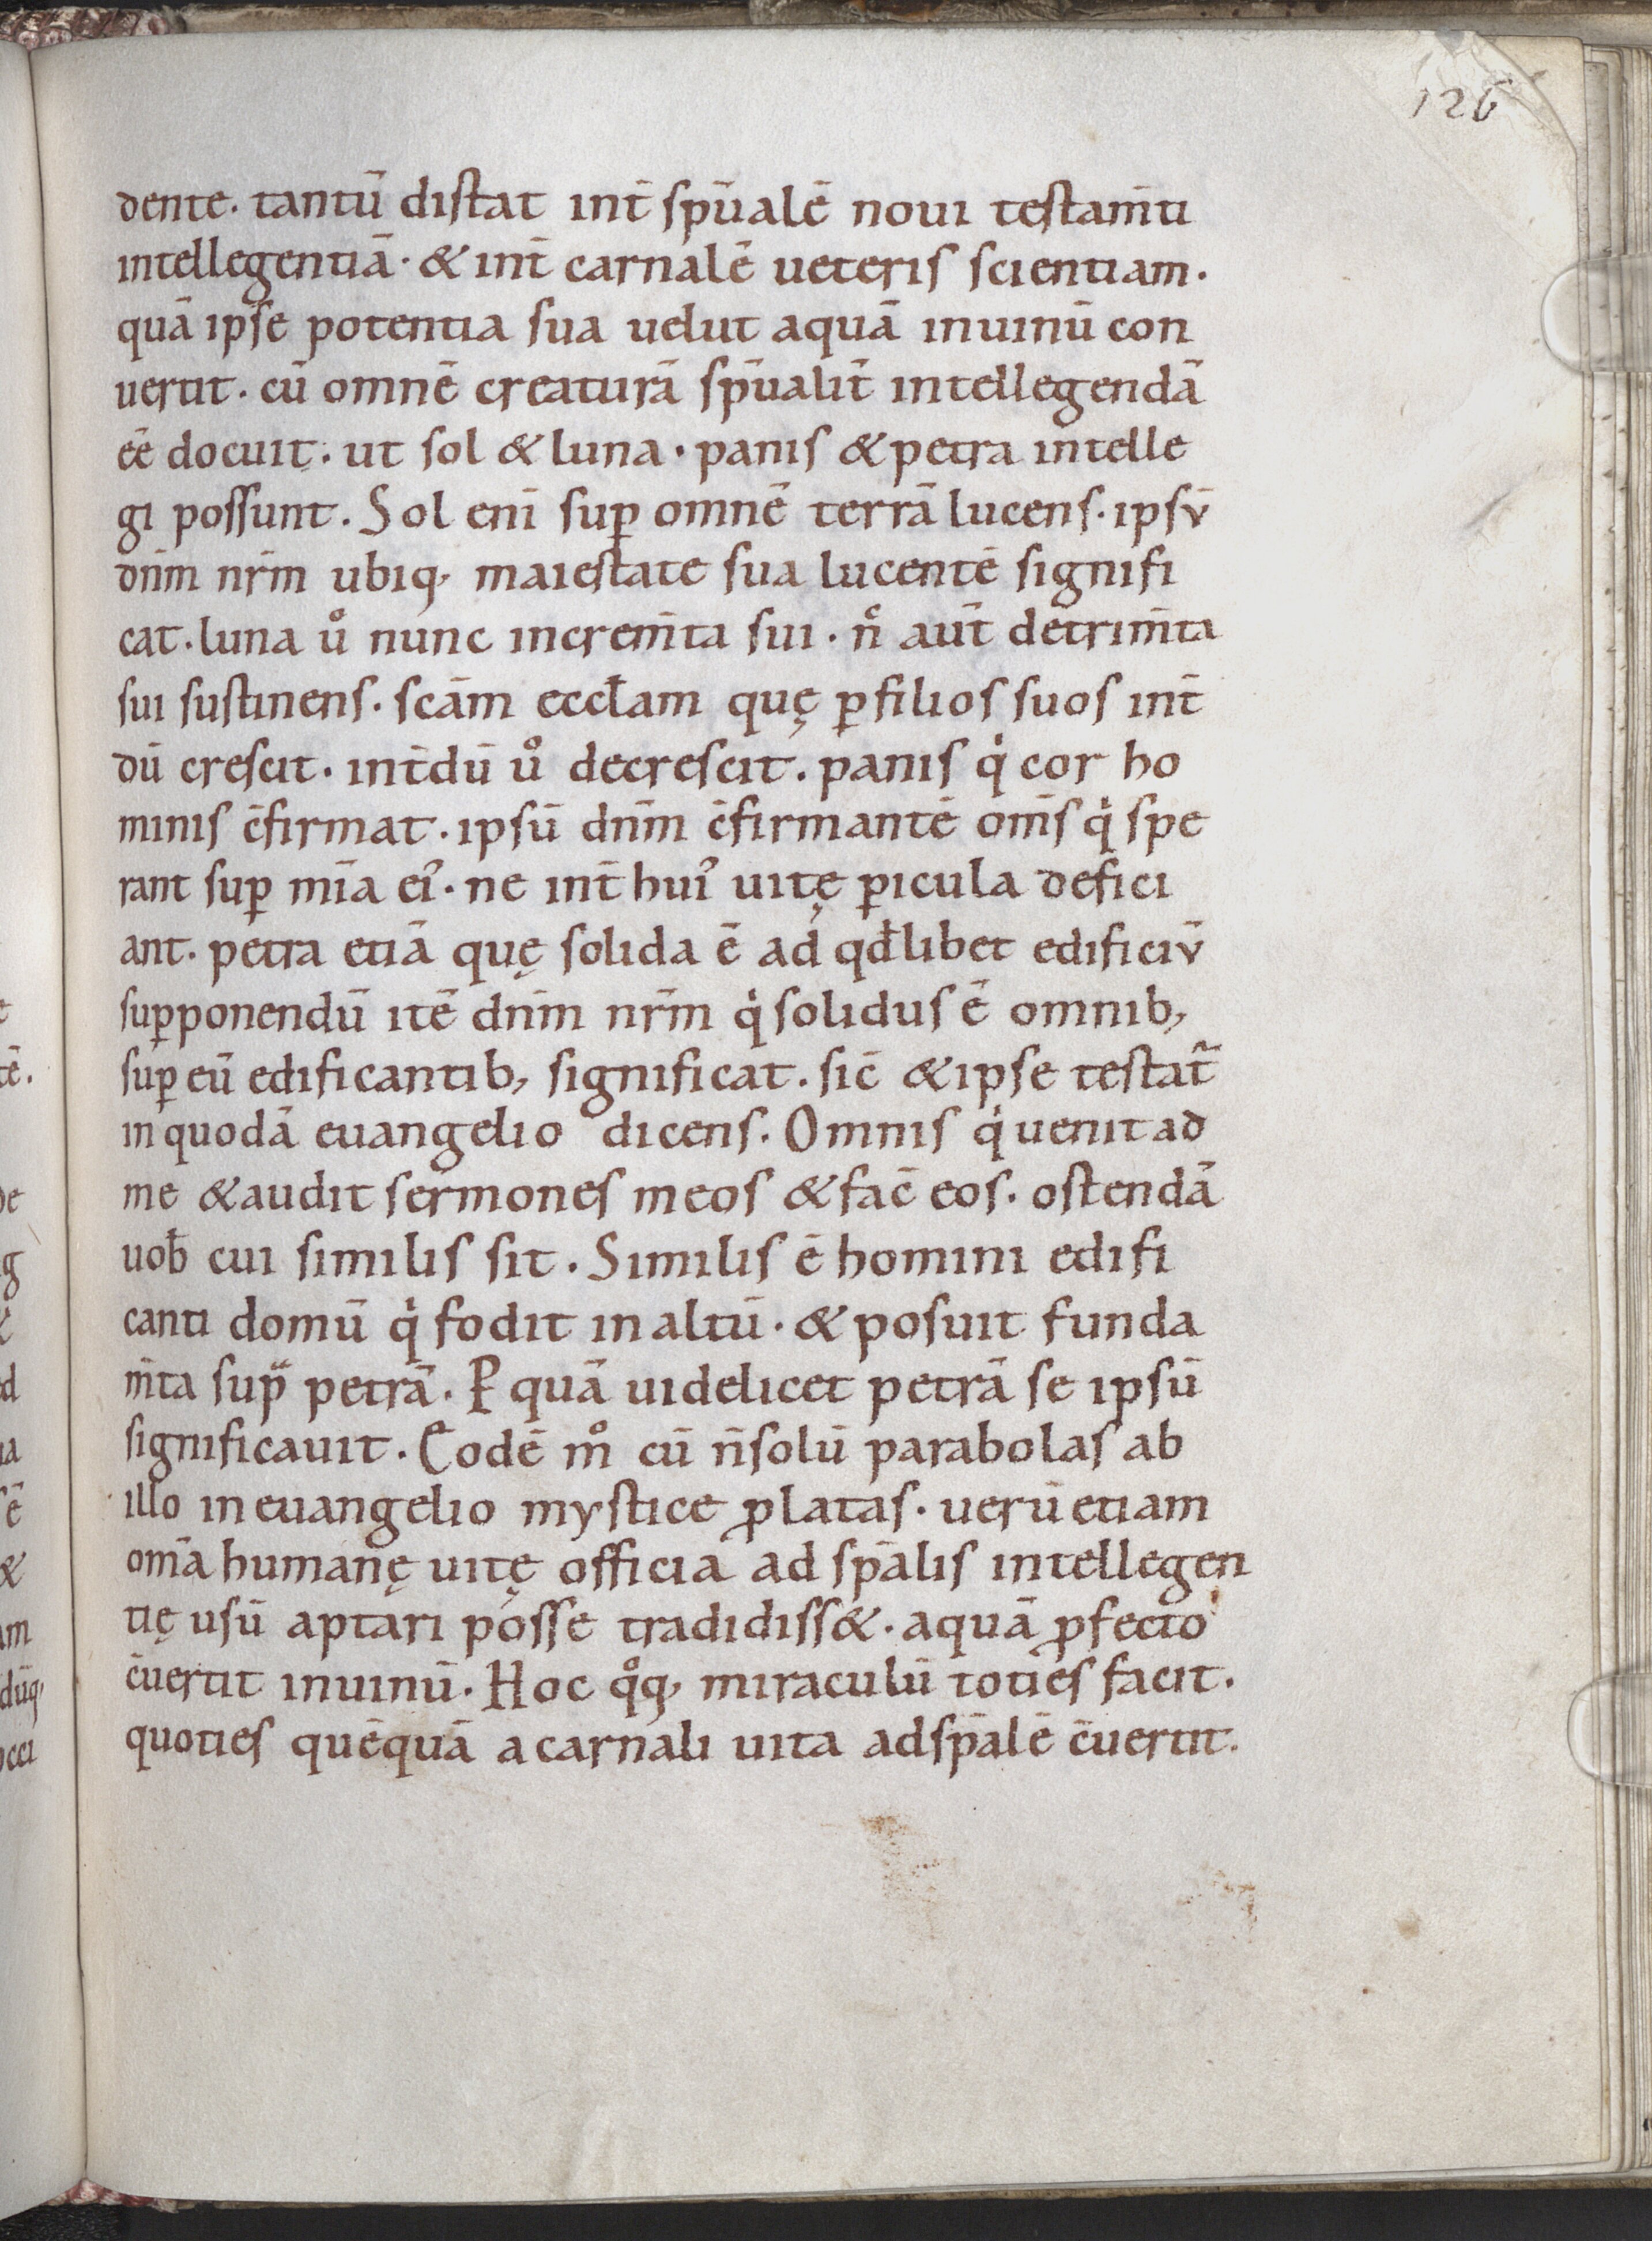 126
dente. tantū distat int̄ sp̄ualē noui testam̄ti
intellegentiā. & int̄ carnalē ueteris scientiam.
quā ipse potentia sua uelut aquā inuinū con
uertit. cū omnē creaturā sp̄ualit̄ intellegendā
eē docuit. ut sol & luna. panis & petra intelle
gi possunt. Sol eni̅ suꝑ omnē terrā lucens. ipsv̄
dn̄m nr̄m ubiq, maiestate sua lucentē signifi
cat. luna uͦ nunc increm̄ta sui. nͨ aut̄ detrim̄ta
sui sustinens. scām eccłam quę ꝑ filios suos int̄
dū crescit. int̄dū uͦ decrescit. panis qͥ cor ho
minis c̄firmat. ipsū dn̄m c̄firmantē om̄s qͥ spe
rant suꝑ mīa ei᾿. ne int̄ hui᾿ uitę ꝑicula defici
ant. petra etiā quę solida ē ad qđlibet edificiv̄
suꝑponendū itē dn̄m nr̄m qͥ solidus ē omnib,
suꝑ eū edificantib, significat. sic̄ & ipse testat᷑
in quodā euangelio dicens. Omnis qͥ uenit ad
me & audit sermones meos & fac̄ eos. ostendā
uob̄ cui similis sit. Similis ē homini edifi
canti domū qͥ fodit in altū. & posuit funda
m̄ta supͣ petrā. Ꝑ quā uidelicet petrā se ipsū
significauit. Eodē mͦ cū n̄ solū parabolas ab
illo in euangelio mystice ꝓlatas. uerū etiam
om̄a humanę uitę officia ad sp̄alis intellegen
tię usū aptari posse tradidiss&. aquā ꝓfecto
c̄uertit inuinū. Hoc qͦq, miraculū toties facit.
quoties quēquā a carnali uita ad sp̄alē c̄uertit.